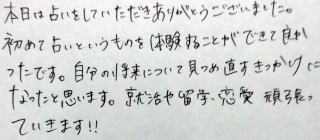 本日は占いをしていただきありがとうございました。
初めて占いというものを体験することができて良か
ったです。自分の将来について見つめ直すきっかけに
なったと思います。就活や留学、恋愛 頑張っ
ていきます!!